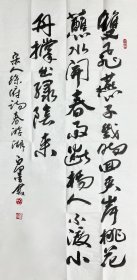 雙飛燕子幾時回夾岸桃花
蘸水開春雨斷橋人不渡小
舟撐出綠陰來
宋徐俯詩春游湖